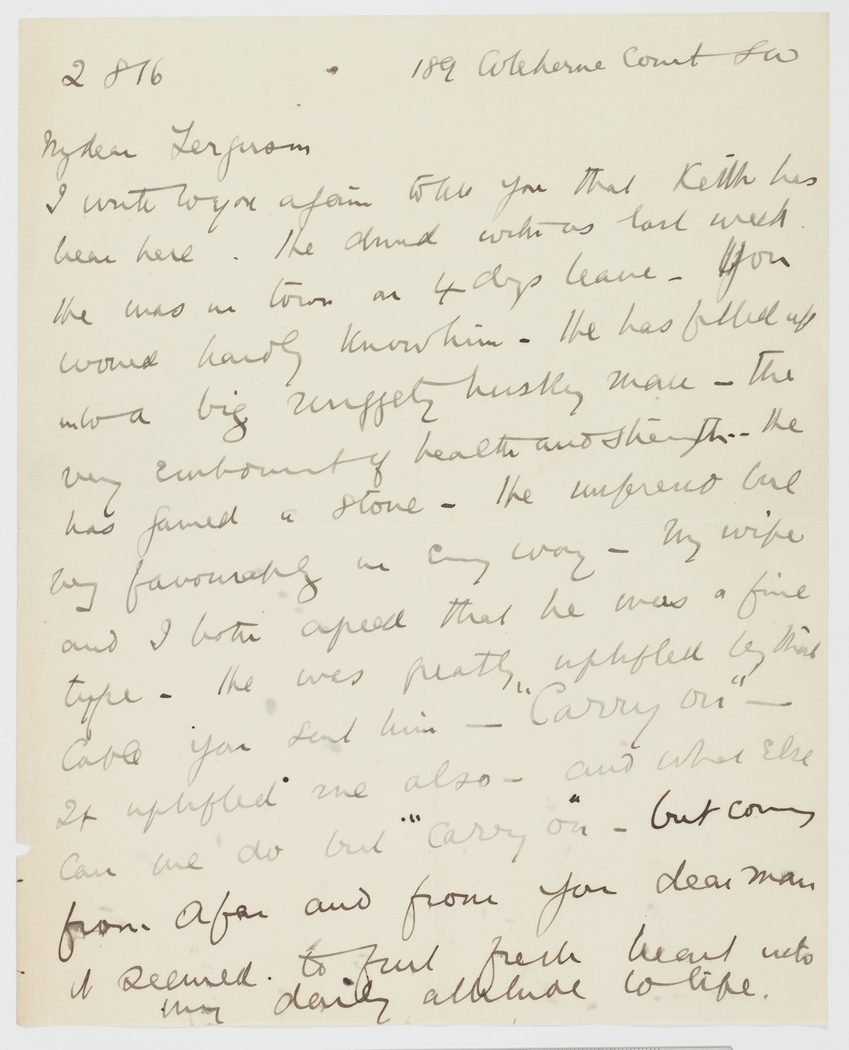 2 8 16 189 Coleherne Court SW
My dear Ferguson
I write to you again to tell you that Keith has
been here. He dined with us last week.
He was in town on 4 days leave - You
would hardly know him - He has filled up
into a big nuggety husky man - the
very embodiment of health and strength - He
has gained a stone - He impressed us all
very favourably in every way - My wife
and I both agreed that he was a fine
type - He was greatly uplifted by that
Cable you sent him - "Carry on" -
It uplifted me also - and what else
can we do but "Carry on" - but coming
from afar and from you dear man
it seemed to put fresh heart into
my daily attitude to life.